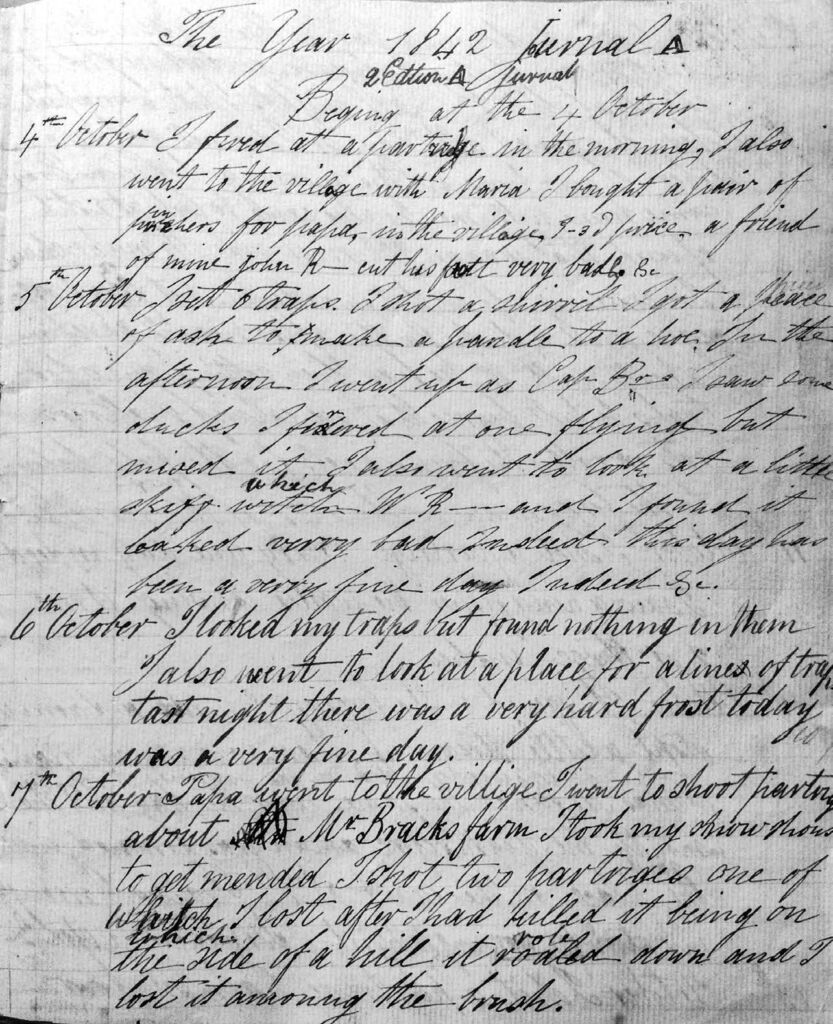 The Year 1842 Jurnal A
2 Edtion A Jurnal
Beging at the 4 October
4th October I fired at a partridge in the morning, I also
went to the village with Maria I bought a pair of
pinchers for papa, in the village, 1-3d price, a friend
of mine John R— cut his foot very bad, &c
5th October I set 6 traps. I shot a squirrel I got a peace
of ash to make a handle to a hoe. In the
afternoon I went up as Cap Brs I saw some
ducks I fired at one flying but
mised it I also went to look at a little
which
skiff witch W R— and I found it
leaked verry bad Indeed this day has
been a verry fine day Indeed &c.
6th October I looked my traps but found nothing in them
I also went to look at a place for a lines of traps
last night there was a very hard frost today
was a very fine day.
7th October Papa went to the villige I went to shoot partrig
about Mr Bracks farm I took my snow shous
to get mended I shot two partriges one of
whitch I lost after I had killed it being on
which roled
the side of a hill it roaled down and I
lost it amoung the brush.